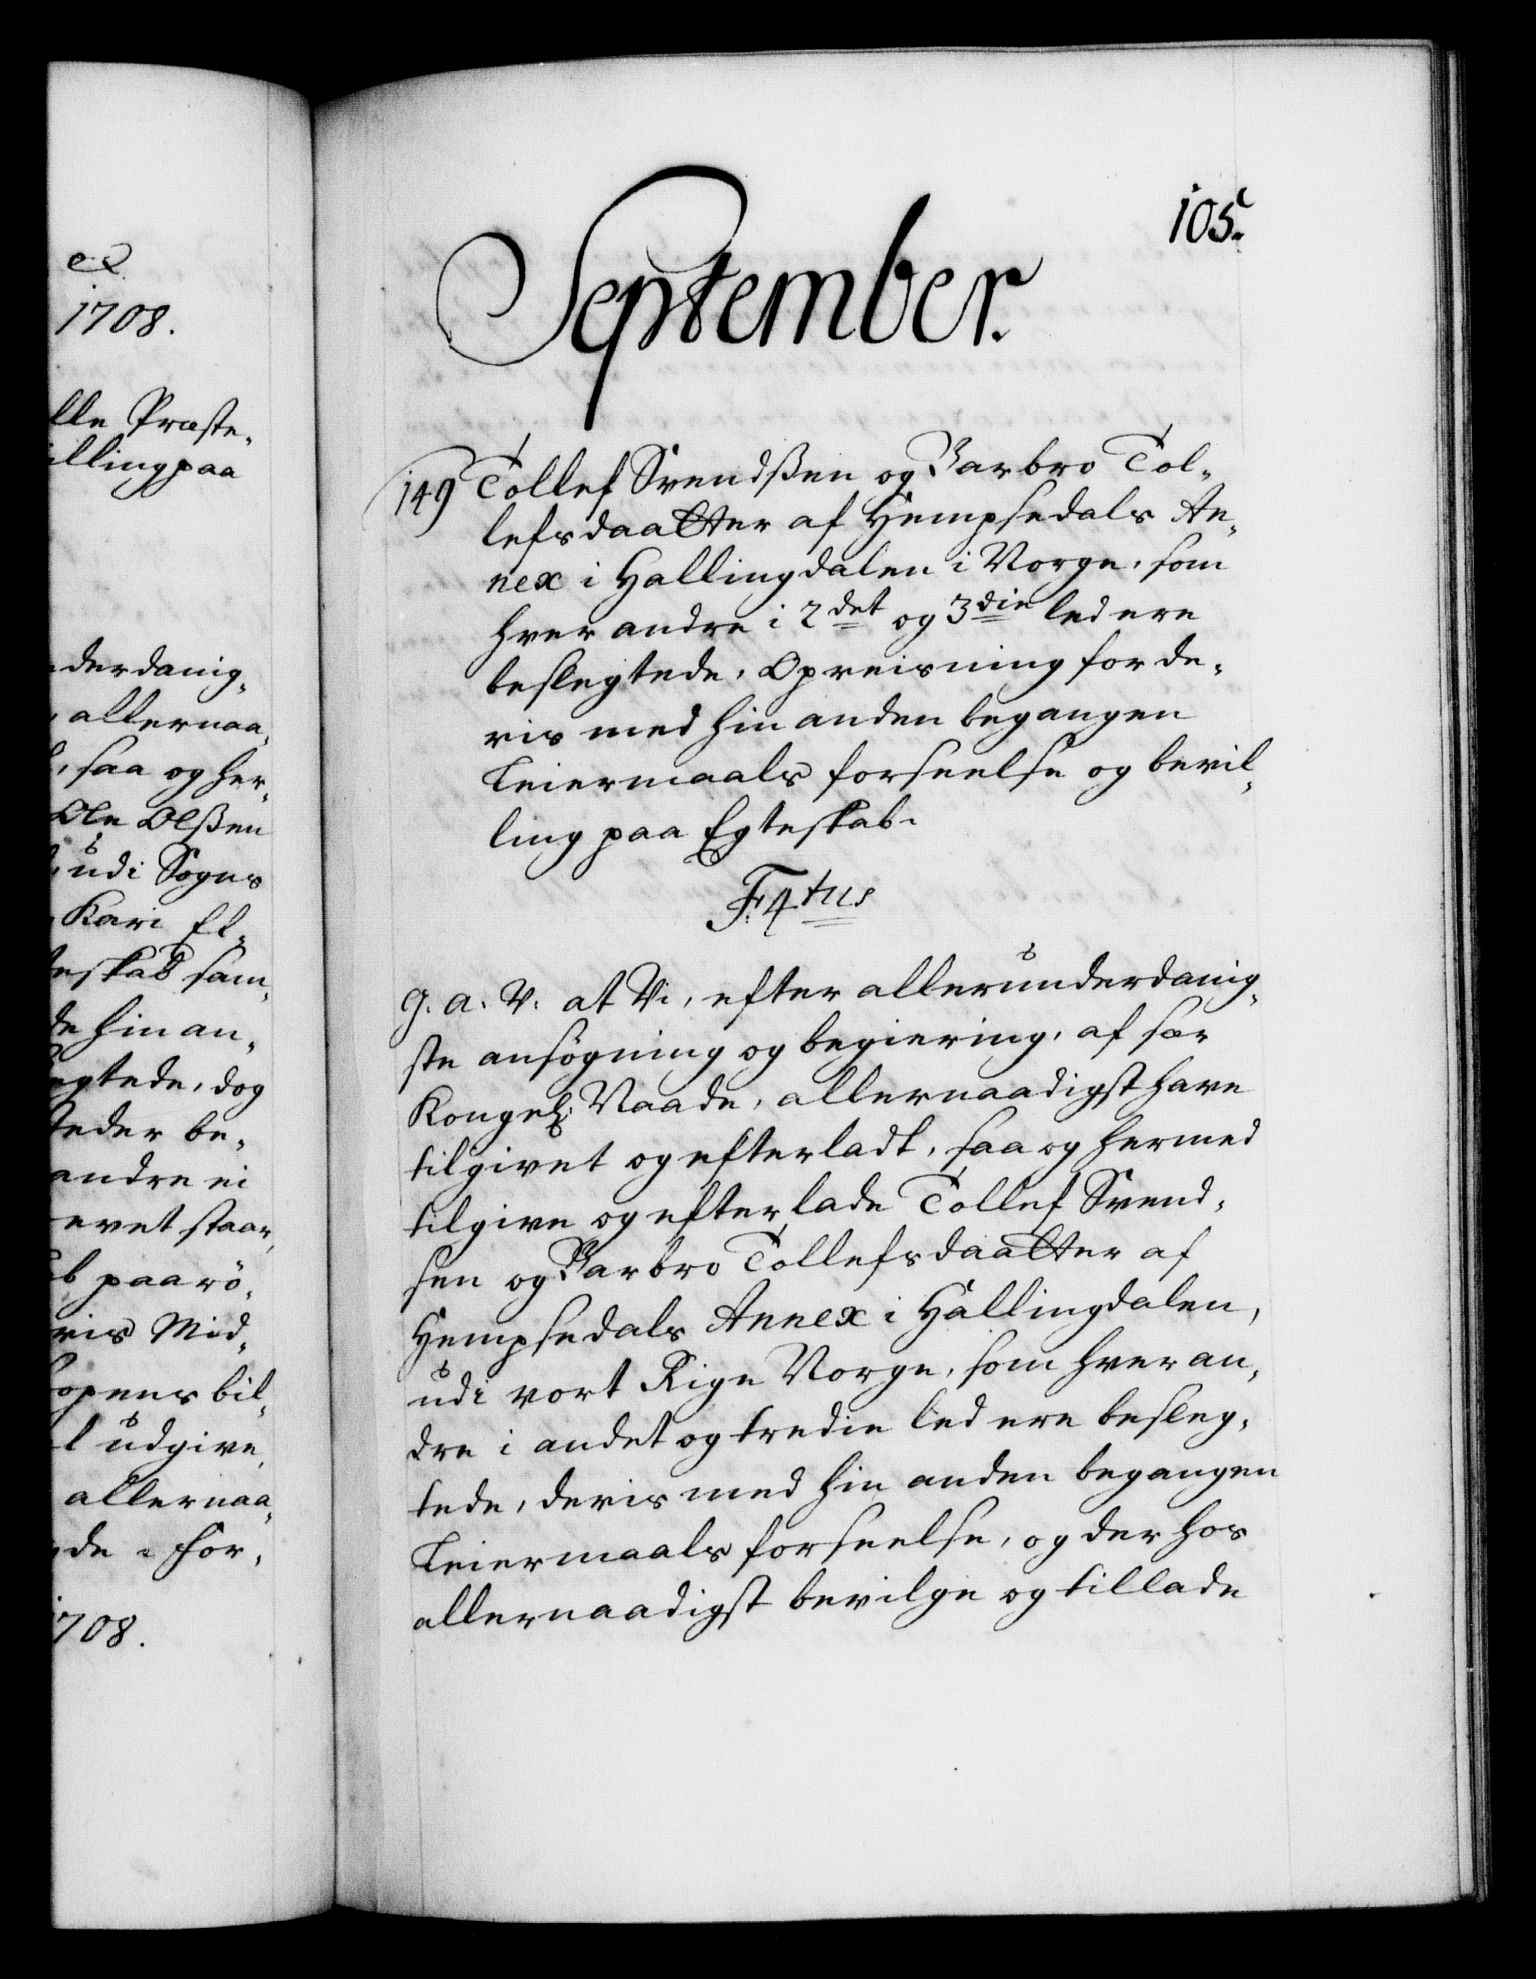 el
1708.
lle Præste„
illing paa
derdanig„
allernaa„
saa og her„
Ole Olßen
udi Sogns
Kari El„
teskab sam„
de hin an„
egtede, dog
steder be„
andre ei
evet staar,
b paa rö„
ris Mid„
opens bil„
l udgive,
allernaa„
de i for„
1708.
105.
September.
149 Tollef Svendßen og Barbro Tol„
lefsdaatter af Hempsedals An„
nex i Hallingdalen i Norge, som
hver andre i 2det og 3die led ere
beslegtede, Opreisning for de„
ris med hin anden begangen
Leiermaals forseelse og bevil„
ling paa Egteskab.
F: 4tus
G. a. V: at Vi, efter allerunderdanig„
ste ansögning og begiering, af sær
Kongel: Naade, allernaadigst have
tilgivet og efterladt, saa og hermed
tilgive og efterlade Tollef Svend„
sen og Barbro Tollefsdaatter af
Hempsedals Annex i Hallingdalen,
udi vort Rige Norge, som hver an„
dre i andet og tredie led ere besleg„
tede, deris med hin anden begangen
Leiermaals forseelse, og der hos
allernaadigst bevilge og tillade